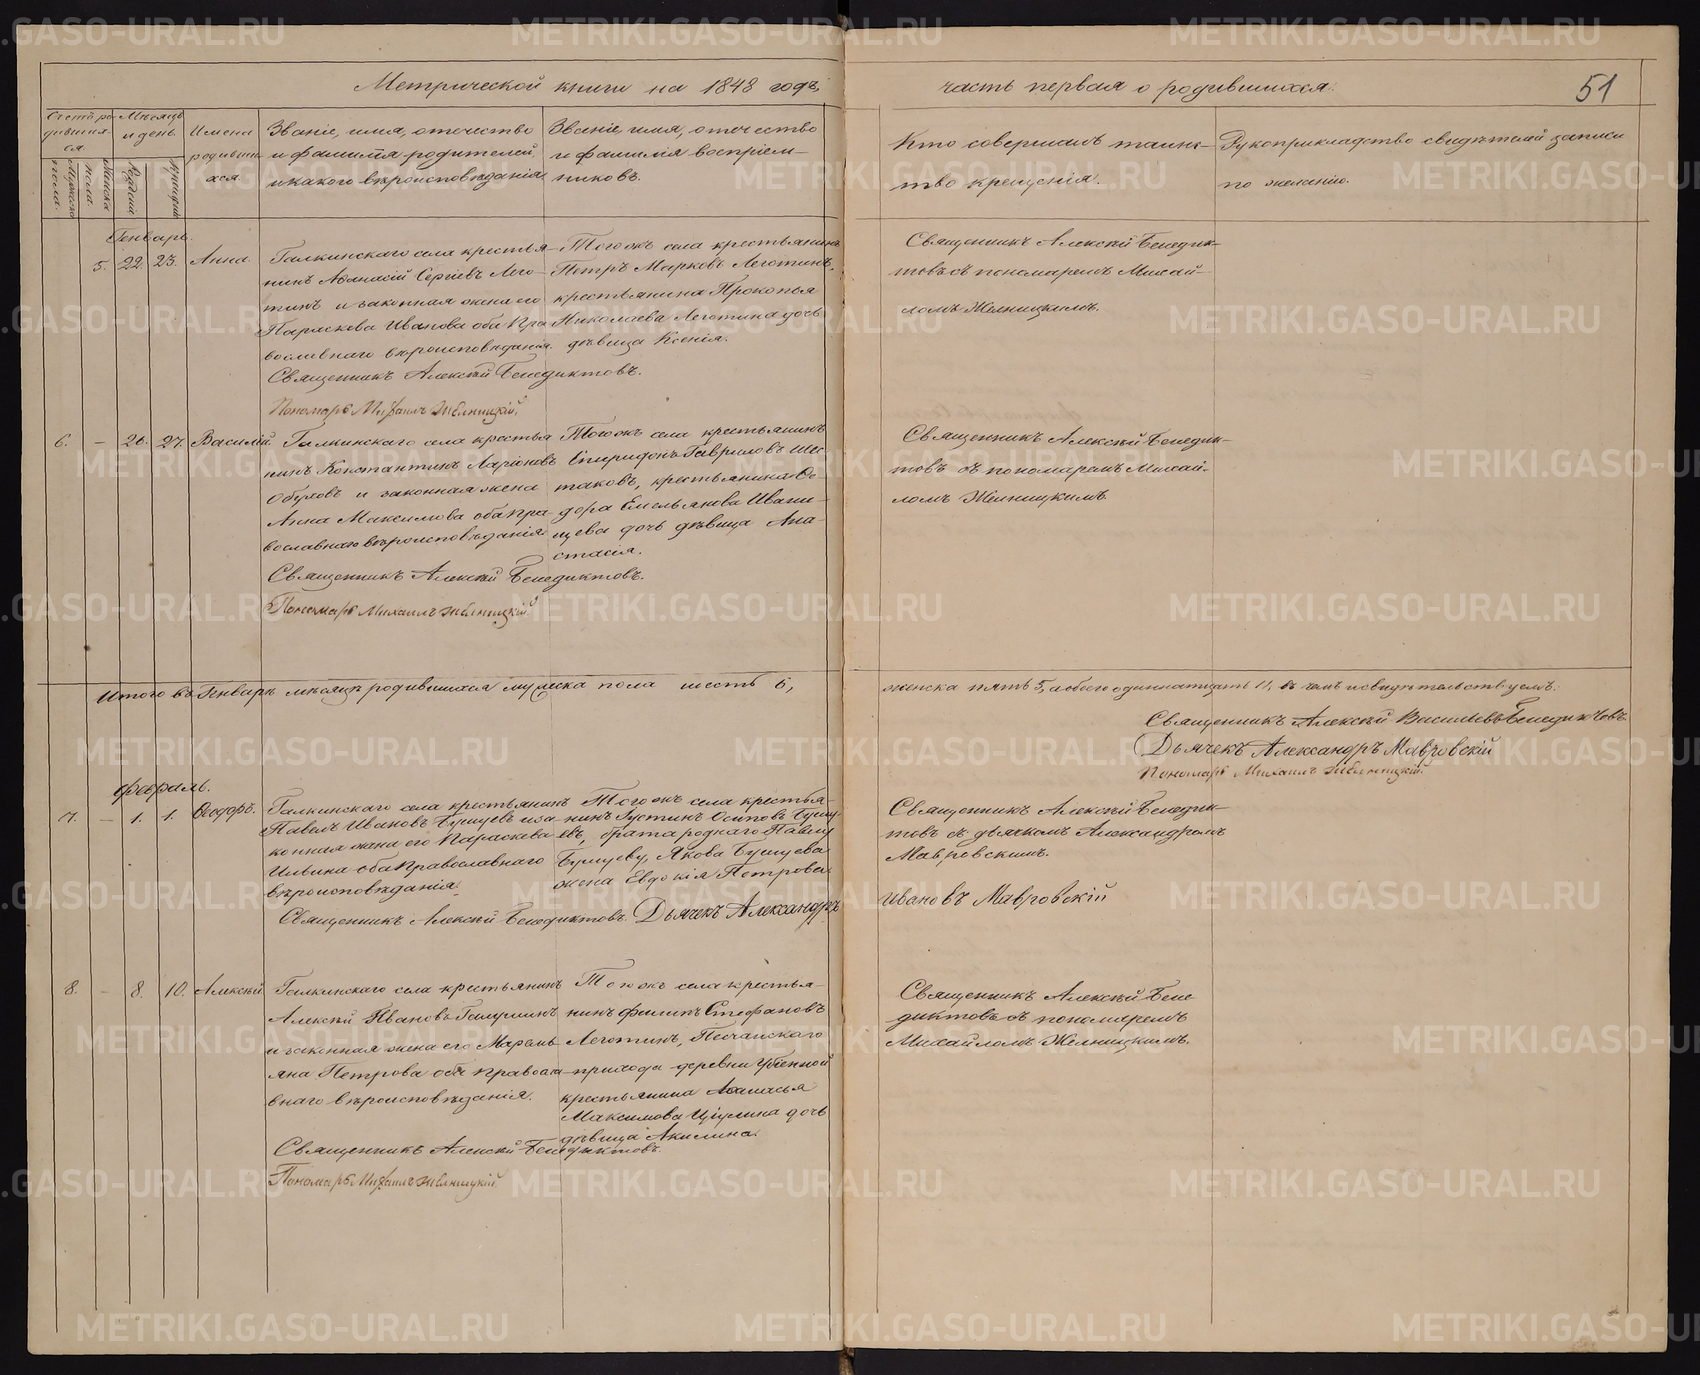 Метрической книги на 1848 годъ,
часть первая о родившихся.
51
Счетъ ро
дивших
ся
Мѣсяцъ
и день
Имена
родивши
хся
Званіе, имя, отечество
и фамилія родителей,
и какого вѣроисповѣданія
Званіе, имя, отечество
и фамилія воспріем-
никовъ.
Кто совершалъ таинс-
тво крещенія.
Рукоприкладство свидѣтелей записи
по желанію.
Мужеска
пола.
Женска
пола.
Рожденія
Крещенія
Генварь.
5. 22. 23. Анна
Галкинскаго села крестья-
нинъ Аѳанасій Сергѣевъ Лего-
тинъ и законная жена его
Параскева Иванова оба пра
вославнаго вѣроисповѣданія.
Священникъ Алексѣй Бенедиктовъ.
Пономарь Михаилъ Желницкій.
Того жъ села крестьянинъ
Петръ Марковъ Леготинъ,
крестьянина Прокопья
Николаева Леготина дочь
дѣвица Ксенія.
Священникъ Алексѣй Бенедик-
товъ съ пономаремъ Михай-
ломъ Желницкимъ.
6. – 26. 27. Василій.
Галкинскаго села крестья
нинъ Константинъ Ларіоновъ
Обуховъ и законная жена
Анна Максимова оба пра-
вославнаго вѣроисповѣданія.
Священникъ Алексѣй Бенедиктовъ.
Пономарь Михаилъ Желницкій.
Того жъ села крестьянинъ
Спиридонъ Гавриловъ Шес
таковъ, крестьянина Ѳе
дора Емельянова Ивани-
щева дочь дѣвица Ана-
стасія.
Священникъ Алексѣй Бенедик-
товъ съ пономаремъ Михай-
ломъ Желницкимъ
Итого въ Генварѣ мѣсяцѣ родившихся мужеска пола шесть 6,
женска пять 5, а обоего одиннатцать 11, въ чемъ и свидѣтельствуемъ.
Священникъ Алексѣй Васильевъ Бенедиктовъ.
Дьячекъ Александръ Мавровскій
Пономарь Михаилъ Желницкій.
Февраль.
7. – 1. 1. Ѳеодоръ.
Галкинскаго села крестьянинъ
Павелъ Ивановъ Бушуевъ и за
конная жена его Параскева
Ильина оба Православнаго
вѣроисповѣданія.
Того жъ села крестья-
нинъ Густинъ Осиповъ Бушу
евъ, брата роднаго Павлу
Бушуеву, Якова Бушуева
жена Евдокія Петрова.
Священникъ Алексѣй Бенедик-
товъ съ дьячкомъ Александромъ
Мавровскимъ.
Священникъ Алексѣй Бенедиктовъ. Дьячекъ Александръ
Ивановъ Мавровскій
8. – 8. 10. Алексѣй
Галкинскаго села крестьянинъ
Алексѣй Ивановъ Галушинъ
и законная жена его Маремь
яна Петрова оба правосла-
внаго вѣроисповѣданія.
Священникъ Алексѣй Бенедиктовъ.
Пономарь Михаилъ Желницкій.
Того жъ села крестья-
нинъ Филипъ Стефановъ
Леготинъ, Песчанскаго
прихода деревни
крестьянина Аѳанасья
Максимова дочь
дѣвица Акилина.
Священникъ Алексѣй Бене
диктовъ съ пономаремъ
Михайломъ Желницкимъ.
METRIKI.GASO-URAL.RU